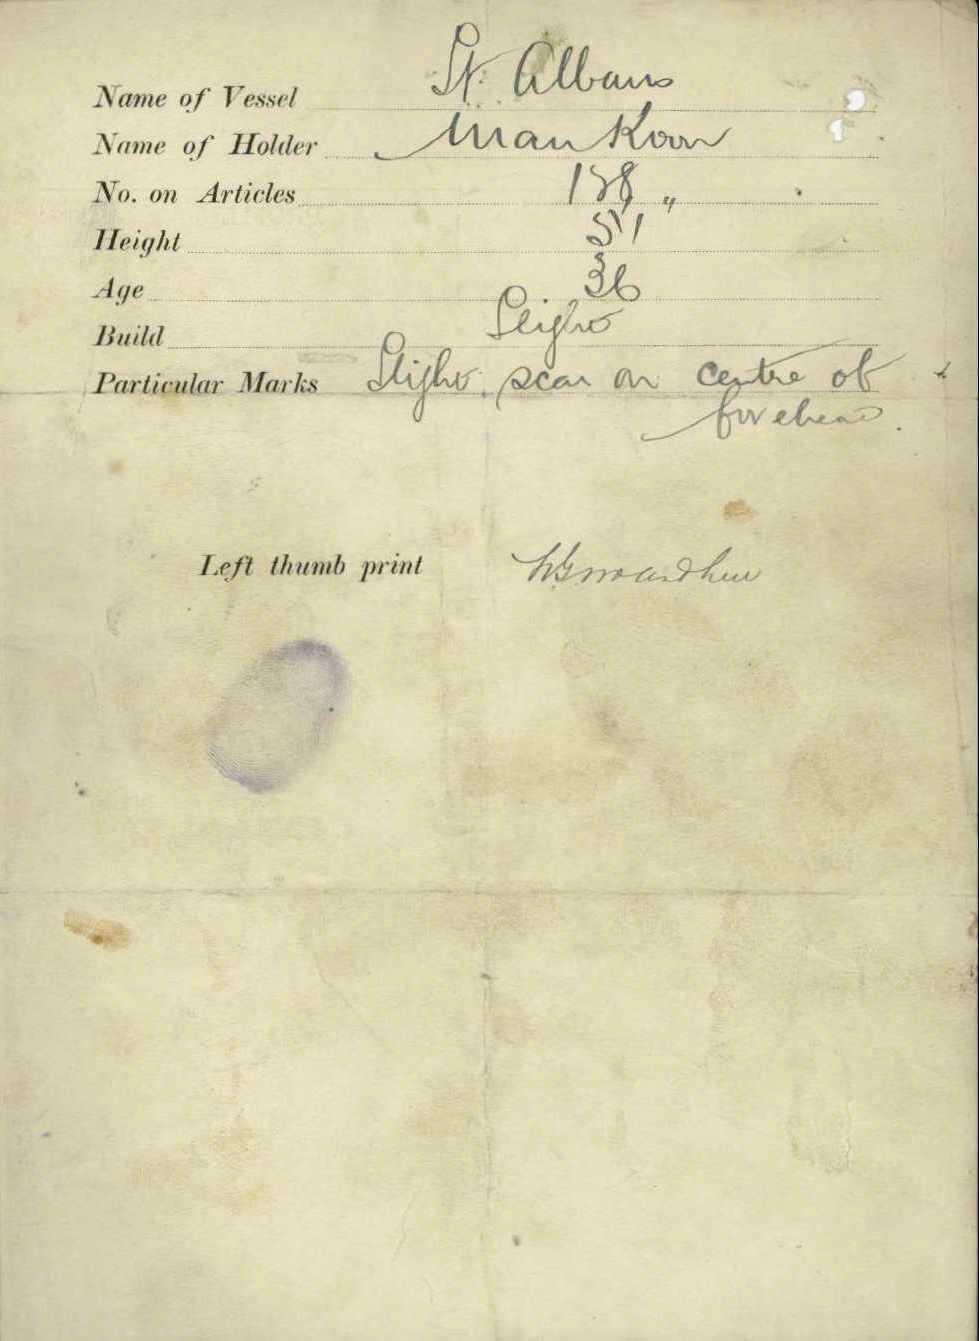 Name of Vessel St. Albans
Name of Holder Man Koon
No. on Articles 128 "
Height 5'1
Age 36
Build Slight
Particular Marks Slight scar on centre of
forehead.
Left thumb print